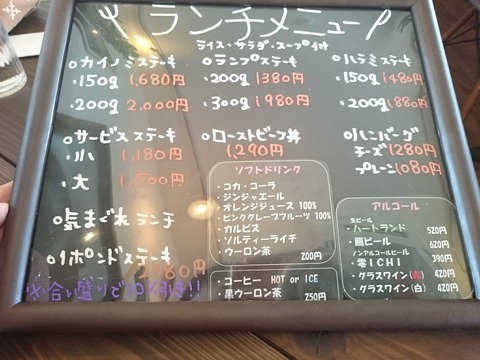 ランチメニュー
ライス・サラダ・スープ付
○カイノミステーキ
・150g 1,680円
・200g 2,000円
○ランプステーキ
・200g 1380円
・300g 1980円
○ハラミステーキ
・150g 1480円
・200g 1880円
○サービスステーキ
・小 1,180円
・大 1,500円
○ローストビーフ丼
1,290円
○ハンバーグ
チーズ 1280円
プレーン 1080円
○気まぐれランチ
○1ポンドステーキ
※合い盛りで
ソフトドリンク
・コカ・コーラ
・ジンジャエール
・オレンジジュース 100%
・ピンクグレープフルーツ 100%
・カルピス
・ソルティーライチ
・ウーロン茶 200円
・コーヒー HOT or ICE
・黒ウーロン茶 250円
アルコール
生ビール
・ハートランド 520円
・瓶ビール 620円
ノンアルコールビール
・零ICHI 390円
・グラスワイン(赤) 420円
・グラスワイン(白) 420円